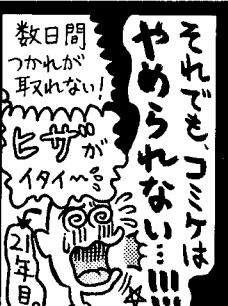 それでも、コミケは
やめられない…!!!!
数日間
つかれが
取れない!
ヒザが
イタイ〜
21年目。